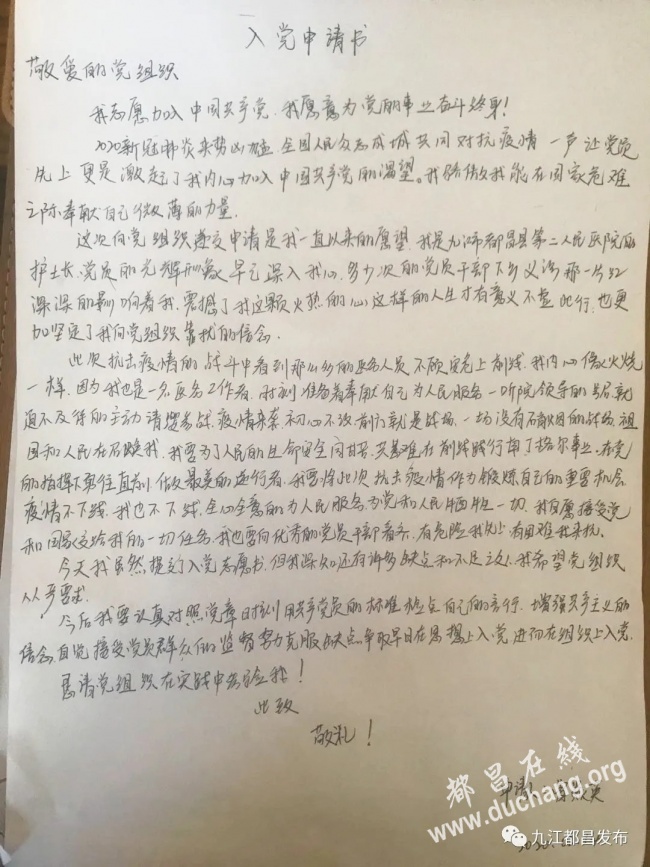 入党申请书
敬爱的党组织
我志愿加入中国共产党，我愿意为党的事业奋斗终身！
2020新冠肺炎来势凶猛，全国人民众志成城共同对抗疫情，一声让党员
先上更是激起了我内心加入中国共产党的渴望。我骄傲我能在国家危难
之际奉献自己微薄的力量。
这次向党组织递交申请是我一直以来的愿望，我是九江市都昌县第二人民医院的
护士长，党员的光辉形象早已深入我心，多少次的党员干部下乡义诊那一片红
深深的影响着我，震撼了我这颗火热的心这样的人生才有意义不虚此行，也更
加坚定了我向党组织靠拢的信念。
此次抗击疫情的战斗中看到那么多的医务人员不顾安危上前线，我内心像火烧
一样，因为我也是一名医务工作者，时刻准备着奉献自己为人民服务一听院领导的号召就
迫不及待的主动请缨参战，疫情来袭初心不改前方就是战场，一场没有硝烟的战场，祖
国和人民在召唤我，我要为了人民的生命安全问
的指挥下勇往直前，做最美的逆行者，我要将此次抗击疫情作为锻炼自己的重要机会
疫情不下线，我也不下线，全心全意的为人民服务，为党和人民牺牲一切，我自愿接受党
和国家交给我的一切任务，我也要向优秀的党员干部看齐，有危险我先上有困难我来抗。
今天我虽然提交了入党志愿书，但我深知还有许多缺点和不足之处，我希望党组织
从严要求。
今后我要认真对照党章时刻用共产党员的标准检点自己的言行，增强共产主义的
信念，自觉接受党员群众们的监督努力克服缺点争取早日在思想上入党进而在组织上入党，
恳请党组织在实战中考验我！
此致
敬礼！
申请人
2020
都昌在线
www.duchang.org
九江都昌发布